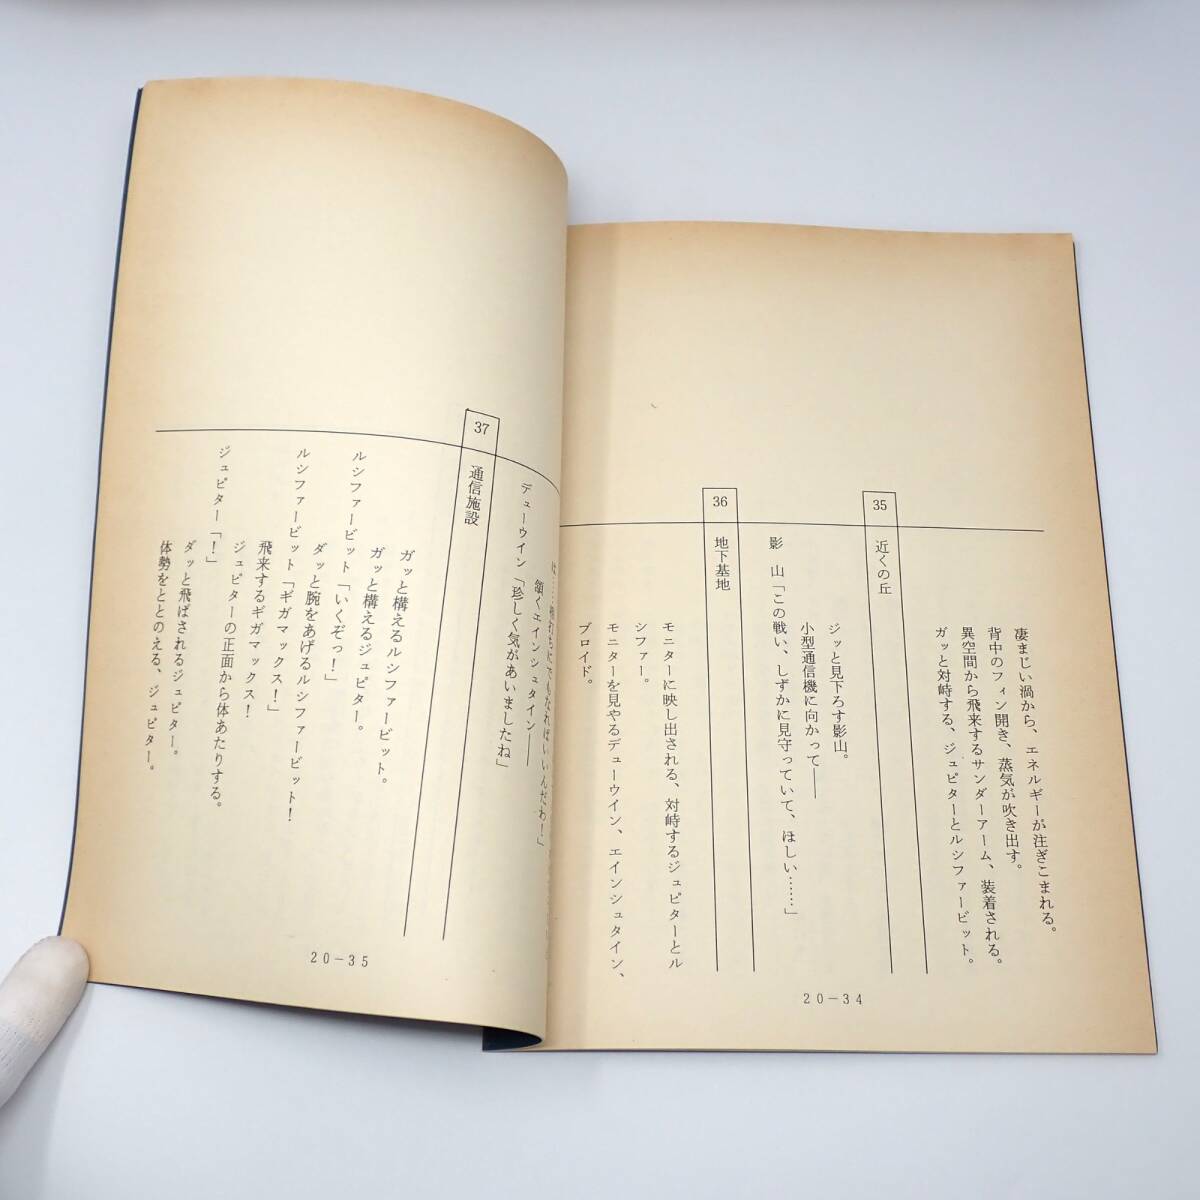 凄まじい渦から、エネルギーが注ぎこまれる。
背中のフィン開き、蒸気が吹き出す。
異空間から飛来するサンダーアーム、装着される。
ガッと対峙する、ジュピターとルシファービット。
35 近くの丘
ジッと見下ろす影山。
小型通信機に向かって――
影 山「この戦い、しずかに見守っていて、ほしい……」
36 地下基地
モニターに映し出される、対峙するジュピターとル
シファー。
モニターを見やるデューウイン、エインシュタイン、
ブロイド。
20-34
打ちにでもなればいいんだわ！」
頷くエインシュタイン――
デューウイン「珍しく気があいましたね」
37 通信施設
ガッと構えるルシファービット。
ガッと構えるジュピター。
ルシファービット「いくぞっ！」
ダッと腕をあげるルシファービット！
ルシファービット「ギガマックス！」
飛来するギガマックス！
ジュピターの正面から体あたりする。
ジュピター「！」
ダッと飛ばされるジュピター。
体勢をととのえる、ジュピター。
20-35